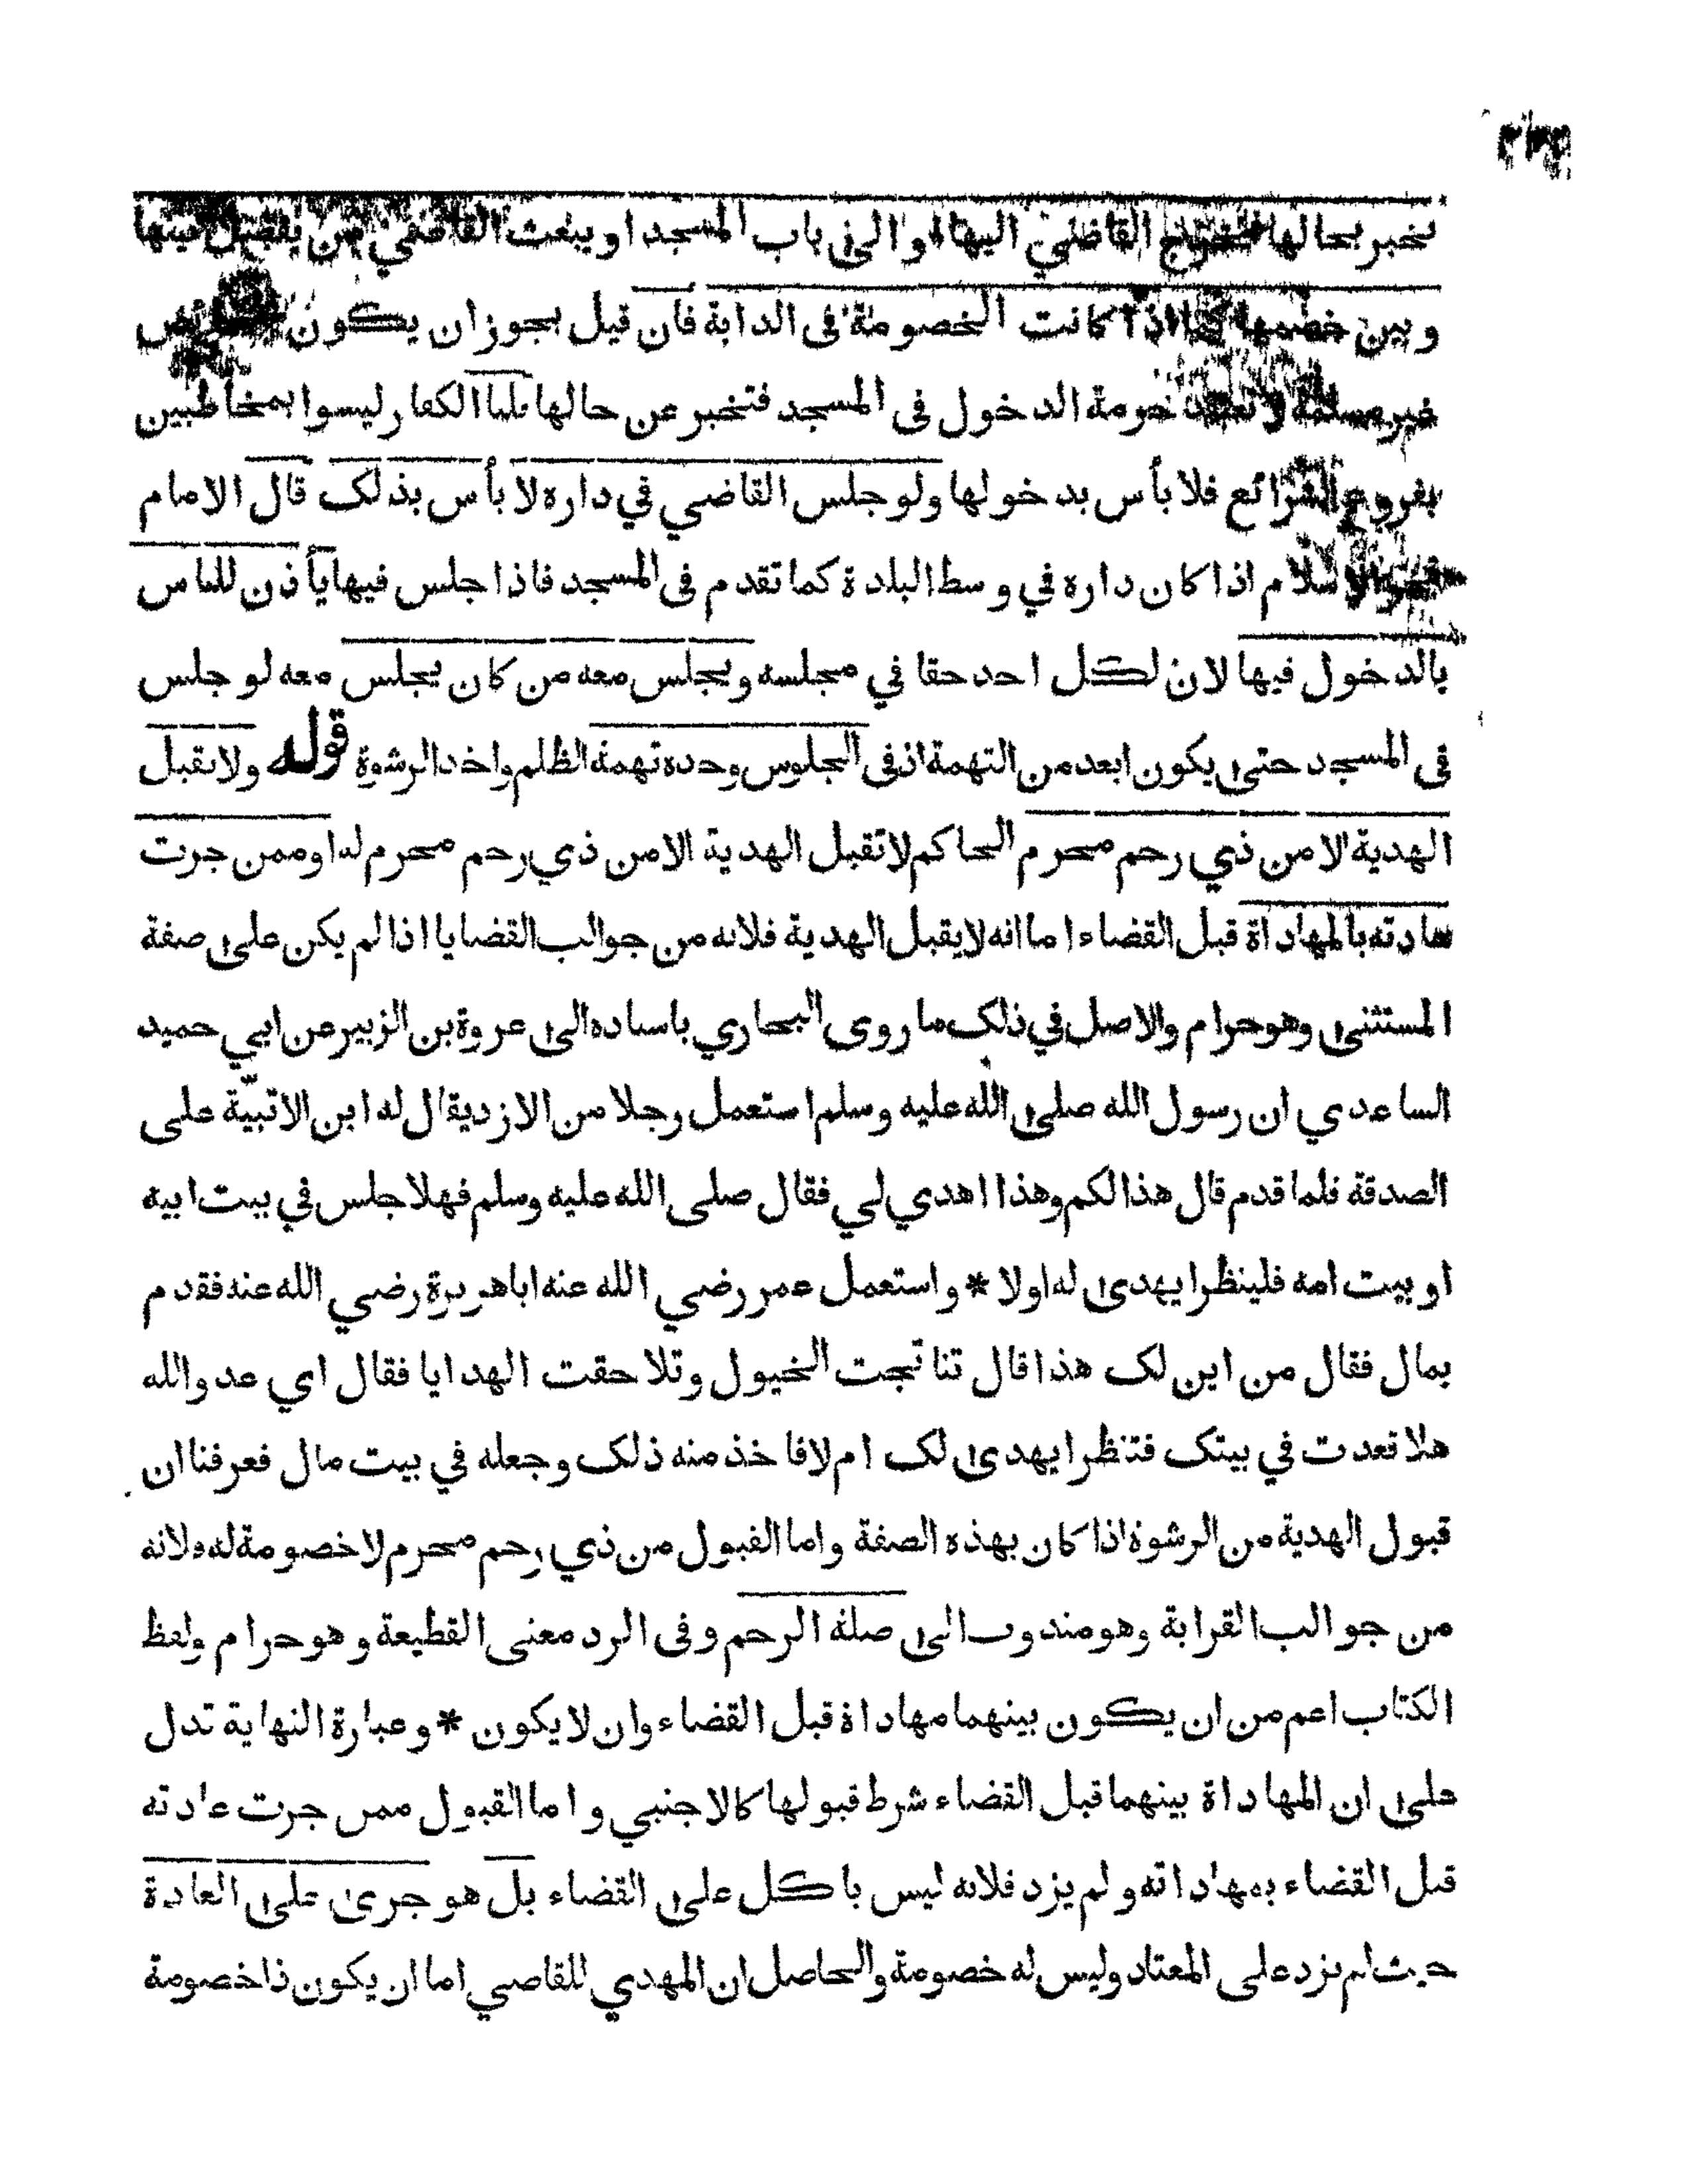 تخبر بحالها فيخرج القاضي اليها او الى باب المسجد او يبعث القاضي من يفصل بينها
وبين خصمها كما اذا كانت الخصومة في الدابة فان قيل يجوز ان يكون
غير مسلمة لا تعتقد حرمة الدخول في المسجد فتخبر عن حالها قلنا الكفار ليسوا بمخاطبين
بفروع الشرائع فلا بأس بدخولها ولو جلس القاضي في داره لا بأس بذلك قال الامام
فخر الاسلام اذا كان داره في وسط البلدة كما تقدم في المسجد فاذا جلس فيها يأذن للناس
بالدخول فيها لان لكل احد حقا في مجلسه ويجلس معه من كان يجلس معه لو جلس
في المسجد حتى يكون ابعد من التهمة اذ في الجلوس وحده تهمة الظلم واخذ الرشوة قوله ولا يقبل
الهدية الا من ذي رحم محرم الحاكم لا تقبل الهدية الا من ذي رحم محرم له او ممن جرت
عادته بالمهاداة قبل القضاء اما انه لا يقبل الهدية فلانه من جوالب القضايا اذا لم يكن على صفة
المستثنى وهو حرام والاصل في ذلك ما روى البخاري باسناده الى عروة بن الزبير عن ابي حميد
الساعدي ان رسول الله صلى الله عليه وسلم استعمل رجلا من الازد يقال له ابن الاتبيّة على
الصدقة فلما قدم قال هذا لكم وهذا اهدي لي فقال صلى الله عليه وسلم فهلا جلس في بيت ابيه
او بيت امه فلينظر ايهدى له او لا * واستعمل عمر رضي الله عنه ابا هريرة رضي الله عنه فقدم
بمال فقال من اين لك هذا قال تناتجت الخيول وتلاحقت الهدايا فقال اي عدو الله
هلا قعدت في بيتك فتنظر ايهدى لك ام لا فاخذ منه ذلك وجعله في بيت مال فعرفنا ان
قبول الهدية من الرشوة اذا كان بهذه الصفة واما القبول من ذي رحم محرم لا خصومة له ولانه
من جوالب القرابة وهو مندوب الى صلة الرحم وفى الرد معنى القطيعة وهو حرام ولفظ
الكتاب اعم من ان يكون بينهما مهاداة قبل القضاء وان لا يكون * وعبارة النهاية تدل
على ان المهاداة بينهما قبل القضاء شرط قبولها كالاجنبي واما القبول ممن جرت عادته
قبل القضاء بمهاداته ولم يزد فلانه ليس باكل على القضاء بل هو جرى على العادة
حيث لم يزد على المعتاد وليس له خصومة والحاصل ان المهدي للقاضي اما ان يكون ذا خصومة